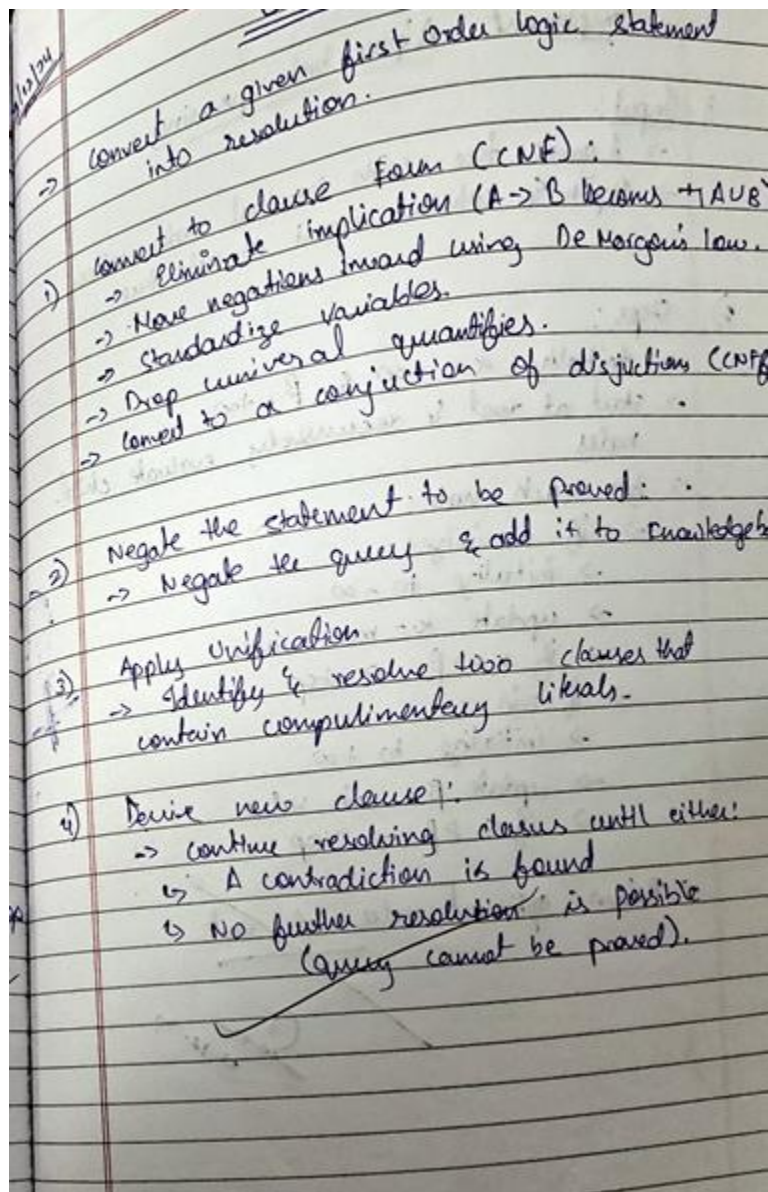 -> Convert a given first order logic statement
into resolution.
1) Convert to clause Form (CNF):
-> Eliminate implication (A -> B becoms ¬AUB)
-> Move negations inward using De Morgan's law.
-> Standardize variables.
-> Drop universal quantifies.
-> Convert to a conjuction of disjuctions (CNF)
2) Negate the statement to be proved:
-> Negate the query & add it to knowledgeb
3) Apply Unification
-> Identify & resolve two clauses that
contain compulimentary literals.
4) Derive new clause:
-> continue resolving clasus until either:
↳ A contradiction is found
↳ No further resolution is possible
(query cannot be proved).